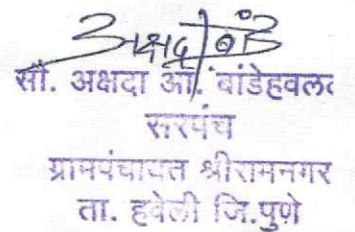 सौ. अक्षदा आ. बांडेहवल
सरपंच
ग्रामपंचायत श्रीरामनगर
ता. हवेली जि.पुणे